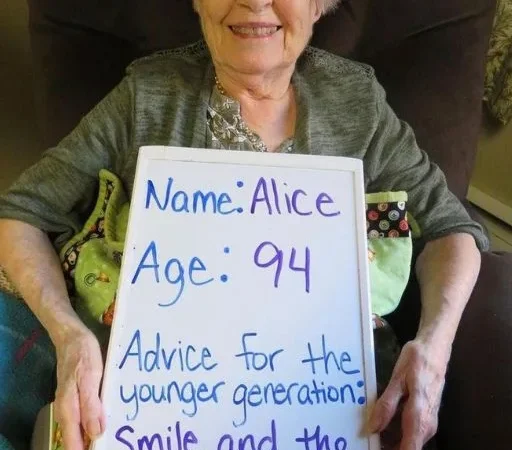 Name: Alice
Age: 94
Advice for the
younger generation:
Smile and the